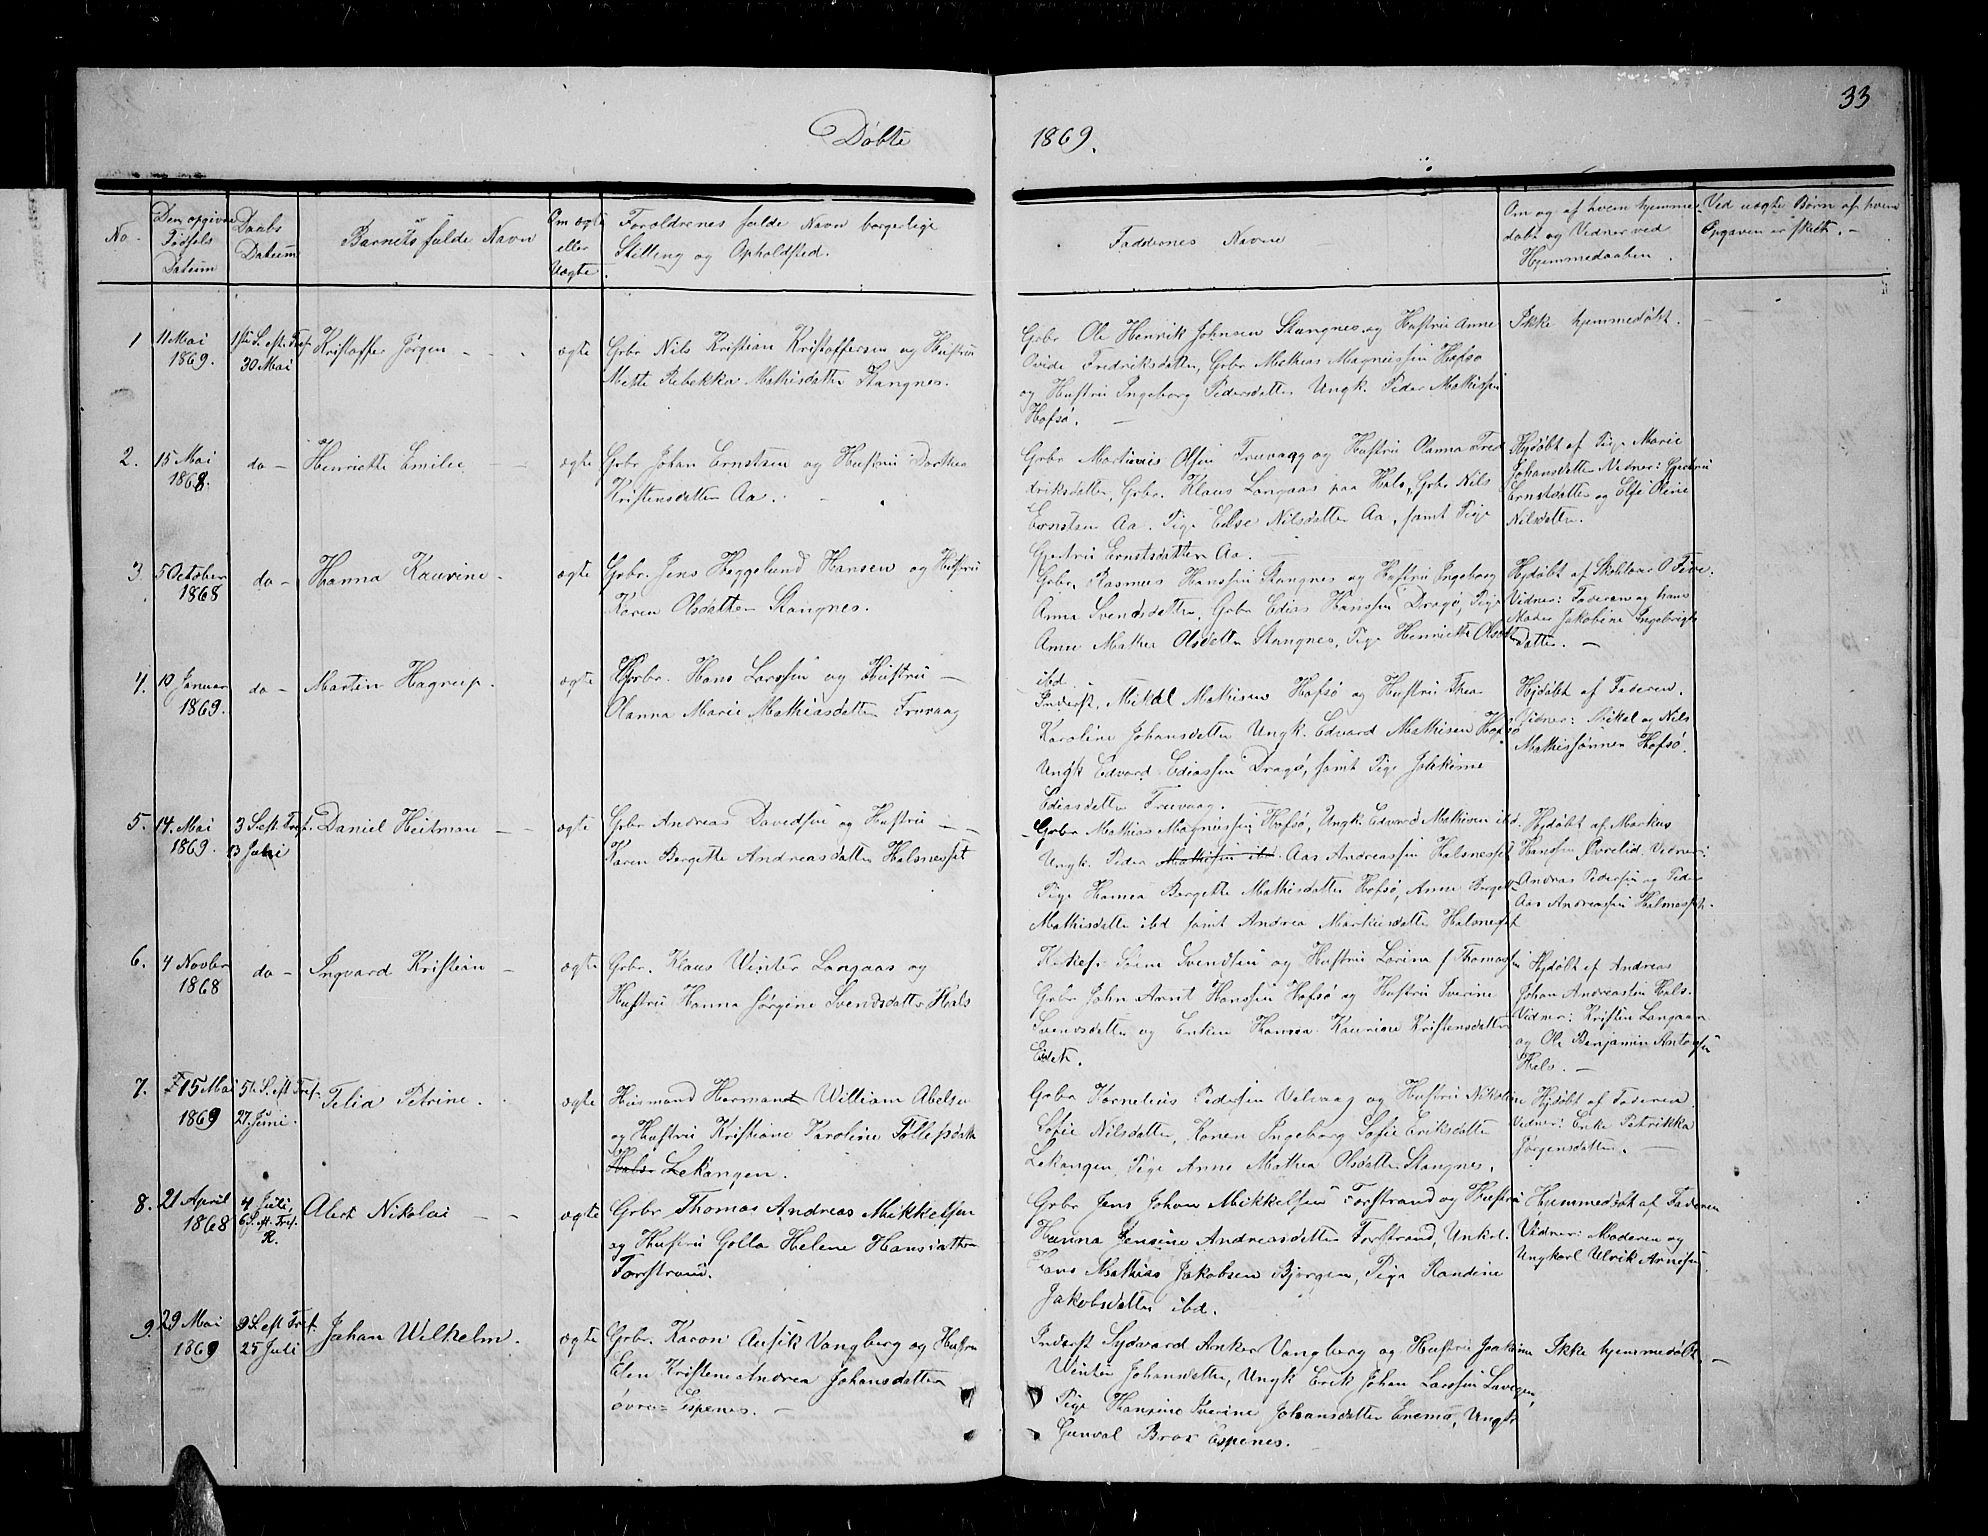 33
Døbte 1869.
No.
Den opgivne Fødsels Datum
Daabs Datum
Barnets fulde Navn
Om ægte eller Uægte
Forældrenes fulde Navn borgerlige Stilling og Opholdsted.
Faddernes Navne
Om og af hvem hjemmedøbt og Vidner ved Hjemmedaaben.
Ved uægte Børn af hvem Opgaven er skeet. -
1
11 Mai
1869.
1ste S. eft. Tref.
30 Mai
Kristoffer Jørgen - -
ægte
Grbr Nils Kristian Kristoffersen og Hustru
Mette Rebekka Mathisdatter Stangnes.
Grbr Ole Henrik Johnsen Stangnes og Hustru Anne
Ovide Fredriksdatter, Grbr Mathias Magnussen Hofsø
og Hustru Ingeborg Pedersdatter Ungk. Peder Mathissen
Hofsø. -
Ikke hjemmedøbt.
2.
15 Mai
1868.
do -
Henriette Emilie -
ægte
Grbr Johan Ernstsen og Hustru Dorthea
Kristensdatter Aa. -
Grbr Martinus Olsen Truvaag og Hustru Olanna Fred
driksdatter, Grbr. Klaus Langaas paa Hals, Grbr Nils
Ernstsen Aa. Pige Else Nilsdatter Aa, samt Pige
Gjertru Ernstsdatter Aa. -
Hjdøbt af Pige Marie
Johansdatter Vidner: Gjertru
Ernstdatter og Else Oline
Nilsdatter.
3.
5 October
1868
do -
Hanna Kaurine -
ægte
Grbr. Jens Heggelund Hansen og Hustru
Karen Olsdatter Stangnes.
Grbr. Rasmus Hanssen Stangnes og Hustru Ingeborg
Anna Svendsdatter, Grbr Edias Hanssen Dragø, Pige
Anne Mathea Olsdatter Stangnes, Pige Henriette Olsdatter
ibd.
Hjdøbt af Skolelærer O Tøve.
Vidner: Faderen og hans
Moder Jakobine Ingebrigts
datter. -
4.
10 Januar
1869.
do -
Martin Hagrup.
ægte
Grbr. Hans Larssen og Hustru -
Olanna Marie Mathiasdatter Truvaag
Inderst. Mikal Mathisen Hofsø og Hustru Thea
Karoline Johansdatter Ungk. Edvard Mathisen Hofsø
Ungk Edvard Ediassen Dragø, samt Pige Jakkime
Ediasdatter Truvaag.
Hjdøbt af Faderen.
Vidner: Mikal og Nils
Mathissønner Hofsø.
5.
14. Mai
1869.
3 S. eft. Tref.
13 Juni
Daniel Heitman -
ægte
Grbr Andreas Davidsen og Hustru -
Karen Bergette Andreasdatter Halsnesset
Grbr Mathias Magnussen Hofsø, Ungk. Edvard Mathisen ibd.
Ungk. Peder Mathisen ibd. Aas Andreassen Halsnesset
Pige Hansea Bergette Mathisdatter Hofsø, Anne Bergette
Mathisdatter ibd samt Andrea Martinsdatter Halsnesset
Hjdøbt af Markus
Hanssen Øvrelid. Vidner:
Andras Pedersen og Peder
Aas Andreassen Halsnesset.
6.
4 Novber
1868
do -
Ingvard Kristian -
ægte
Grbr. Klaus Winter Langaas og
Hustru Hanna Jørgine Svendsdatter Hals
Kirkesr. Sørn Svendsen og Hustru Lorina f Thomassen
Grbr John Arnt Hanssen Hofsø og Hustru Sverine
Svendsdatter og Enken Hansea Kaurine Kristensdatter
Eidet.
Hjdøbt af Andreas
Johan Andreassen Hals.
Vidner: Kristen Langaas
og Ole Benjamin Antonsen
Hals. -
7.
15 Mai
1869
5te S. eft Tref.
27. Juni.
Telia Petrine.
ægte
Husmand Hermand William Abelsen
og Hustru Kristiane Karoline Tollefsdatter
Hals Lekangen.
Grbr Kornelius Pedersen Valvaag og Hustru Nikoline
Sofie Nilsdatter, Konen Ingeborg Sofie Eriksdatter
Lekangen, Pige Anne Mathea Olsdatter Stangnes.
Hjdøbt af Faderen.
Vidner: Enke Petrikka
Jørgensdatter. -
8.
21 April
1868
4 Juli,
6 S. eft. Tref.
R.
Albert Nikolai -
ægte
Grbr Thomas Andreas Mikkelsen
og Hustru Golla Helene Hansdatter
Forstrand.
Grbr Jens Johan Mikkelsen Forstrand og Hustru
Hanna Jensine Andreasdatter Forstrand, Unkrl.
Hans Mathias Jakobsen Bjorgen, Pige Randine
Jakobsdatter ibd.
Hjemmedøbt af Faderen
Vidner: Moderen og
Ungkarl Ulrik Arnesen.
9.
29 Mai
1869
9 S. eft Tref.
25 Juli
Johan Wilhelm.
ægte
Grbr. Karon Ansik Vangberg og Hustru
Elen Kristine Andrea Johansdatter
øvre Espenes. -
Inderst Sydvard Anker Vangberg og Hustru Joakime
Winter Johansdatter, Ungk Erik Johan Larssen Lavegen,
Pige Hansine Sverine Johansdatter Enemo, Ungk
Gunval Brox Espenes. -
Ikke hjemmedøbt. -